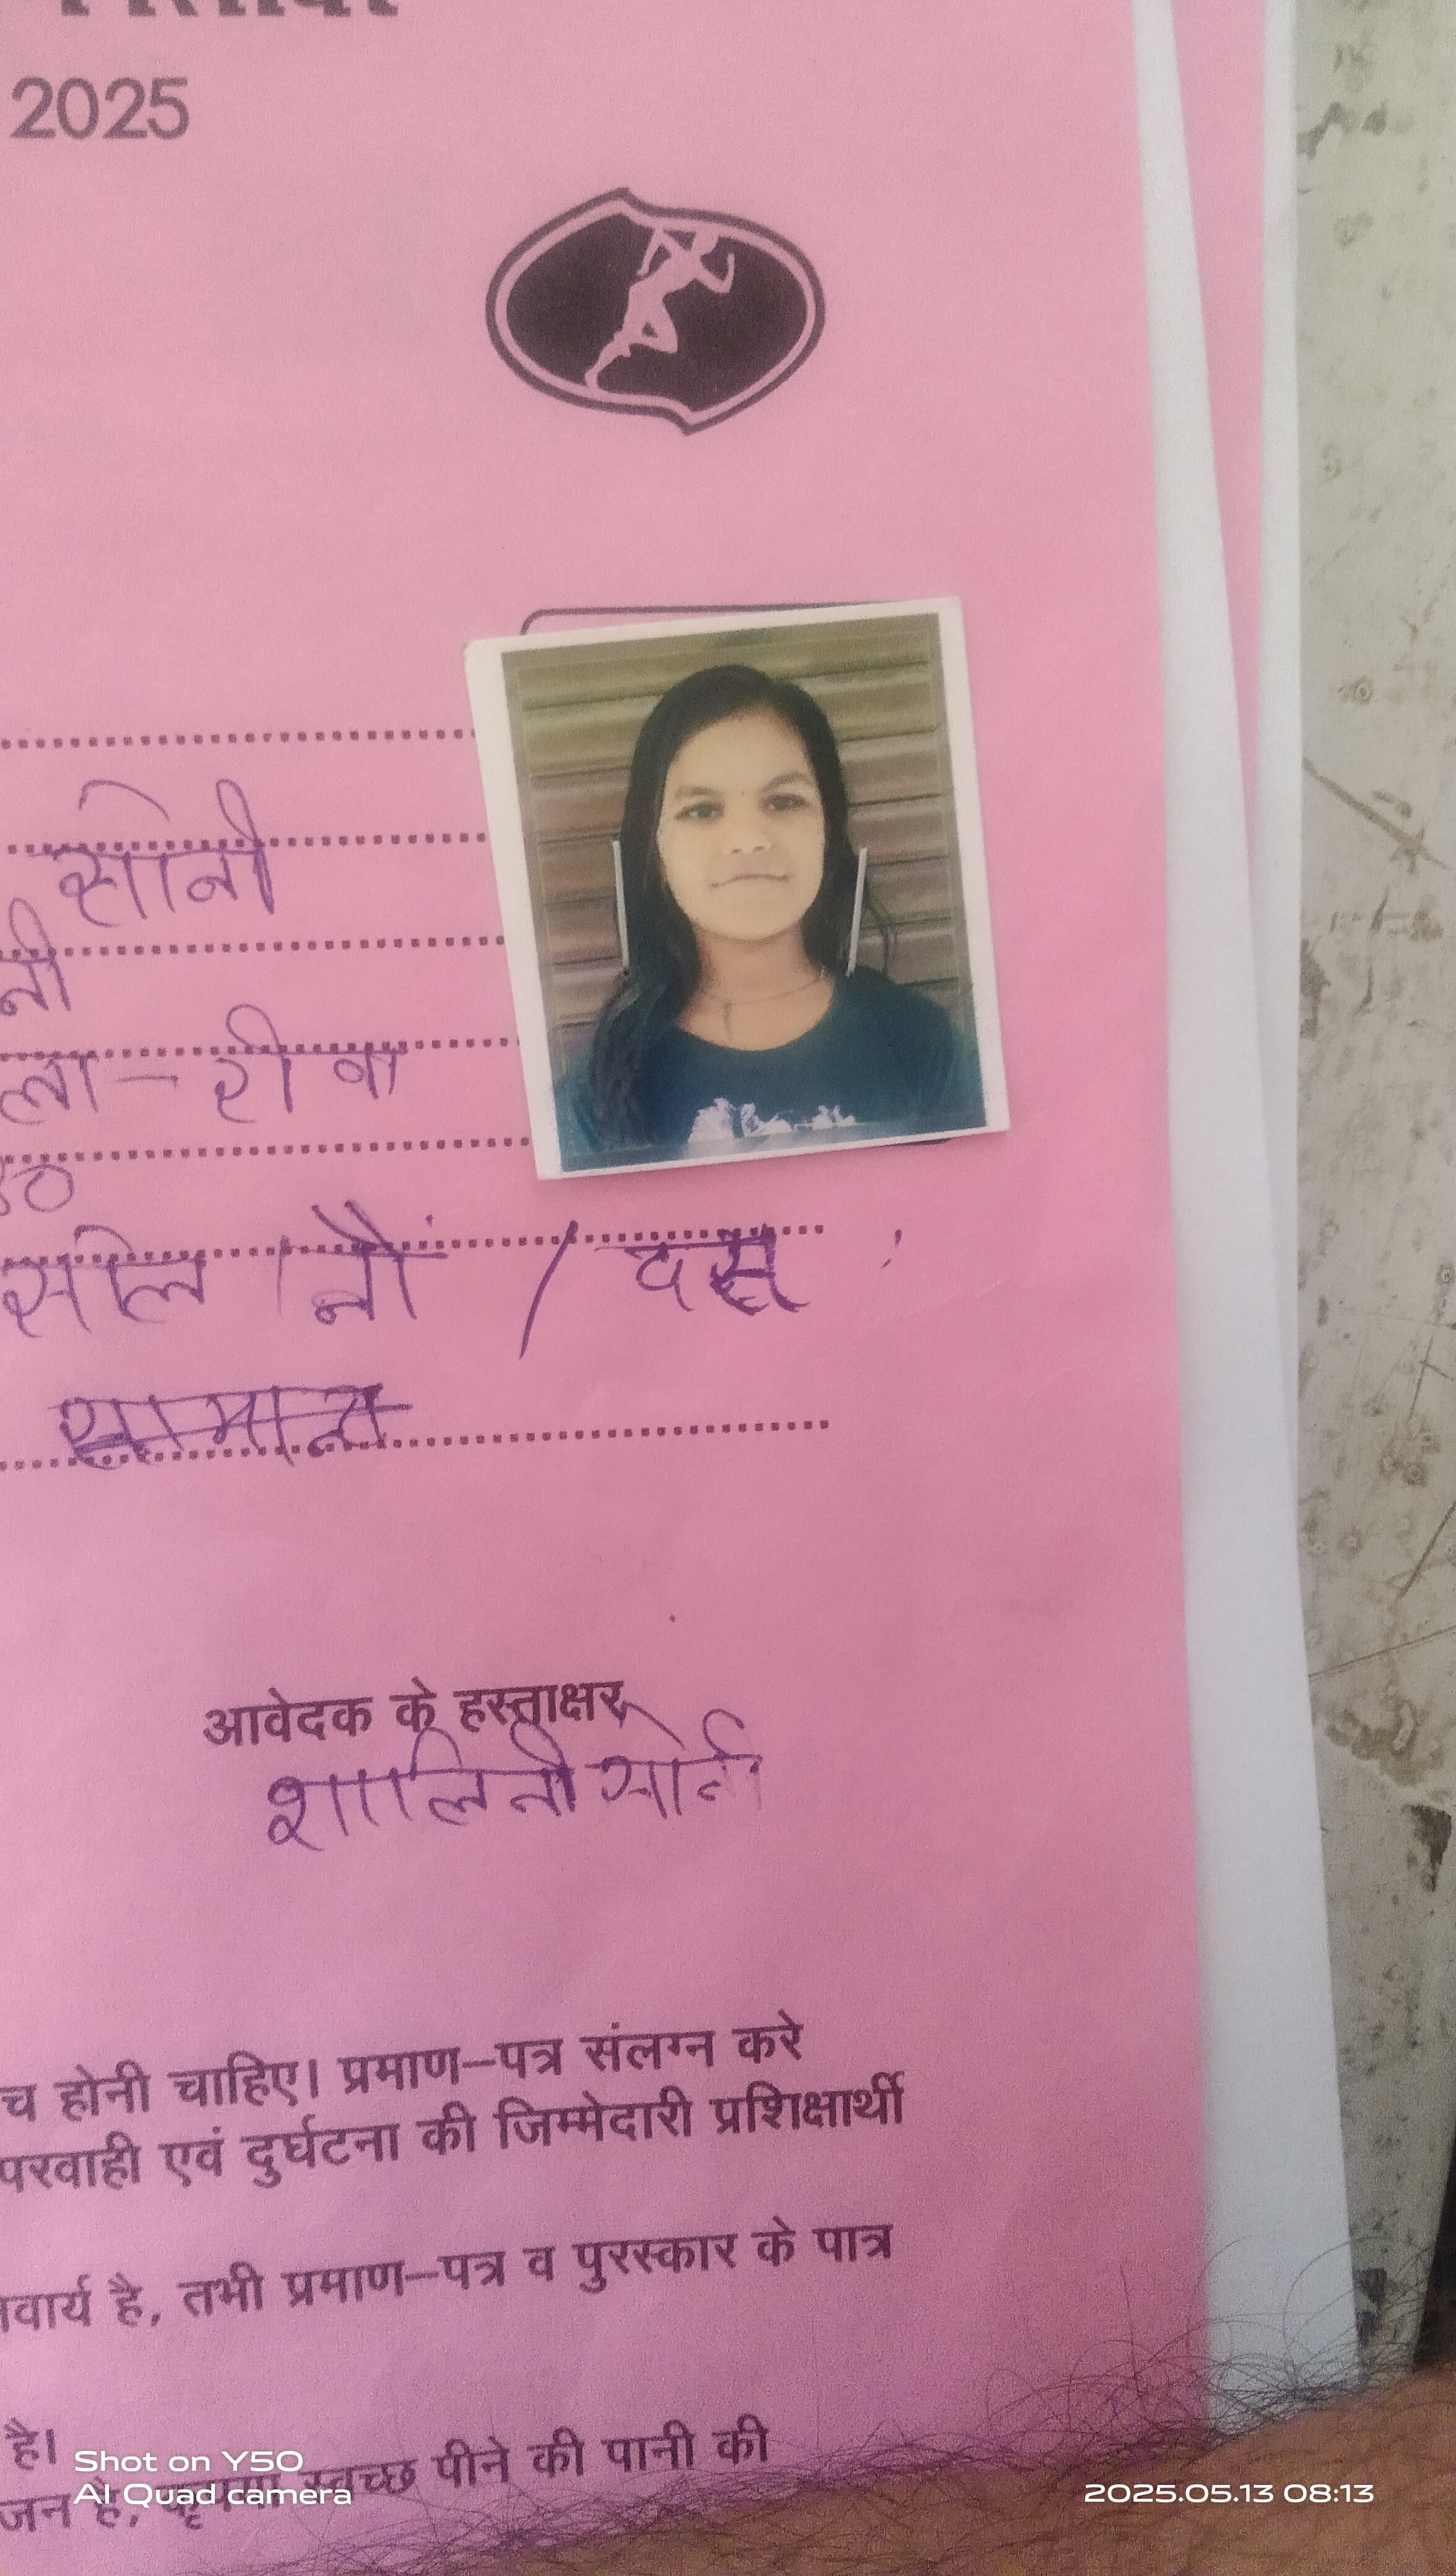 2025
सोनी
नी
ला - रीवा
सलि / नौं / दस
सामान्य
आवेदक के हस्ताक्षर
शालिनी सोनी
च होनी चाहिए। प्रमाण–पत्र संलग्न करे
परवाही एवं दुर्घटना की जिम्मेदारी प्रशिक्षार्थी
वार्य है, तभी प्रमाण–पत्र व पुरस्कार के पात्र
है।
जन है, कृपया स्वच्छ पीने की पानी की
Shot on Y50
AI Quad camera
2025.05.13 08:13